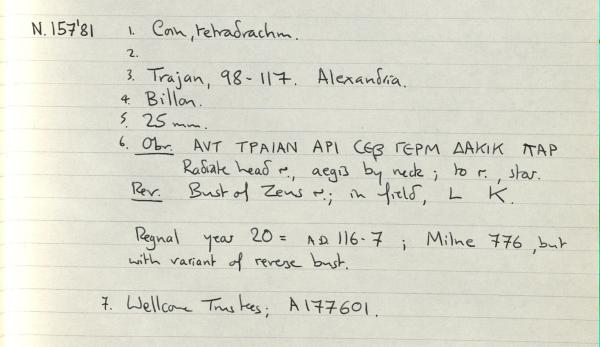 N.157'81 1. Coin, tetradrachm.
2.
3. Trajan, 98-117. Alexandria.
4. Billon.
5. 25 mm.
6. Obv. ΑVΤ ΤΡΑΙΑΝ ΑΡΙ CЄβ ΓΕΡΜ ΔΑΚΙΚ ΠΑΡ
Radiate head r., aegis by neck; to r., star.
Rev. Bust of Zeus r.; in field, L K.
Regnal year 20 = AD 116-7; Milne 776, but
with variant of reverse bust.
7. Wellcome Trustees; A177601.